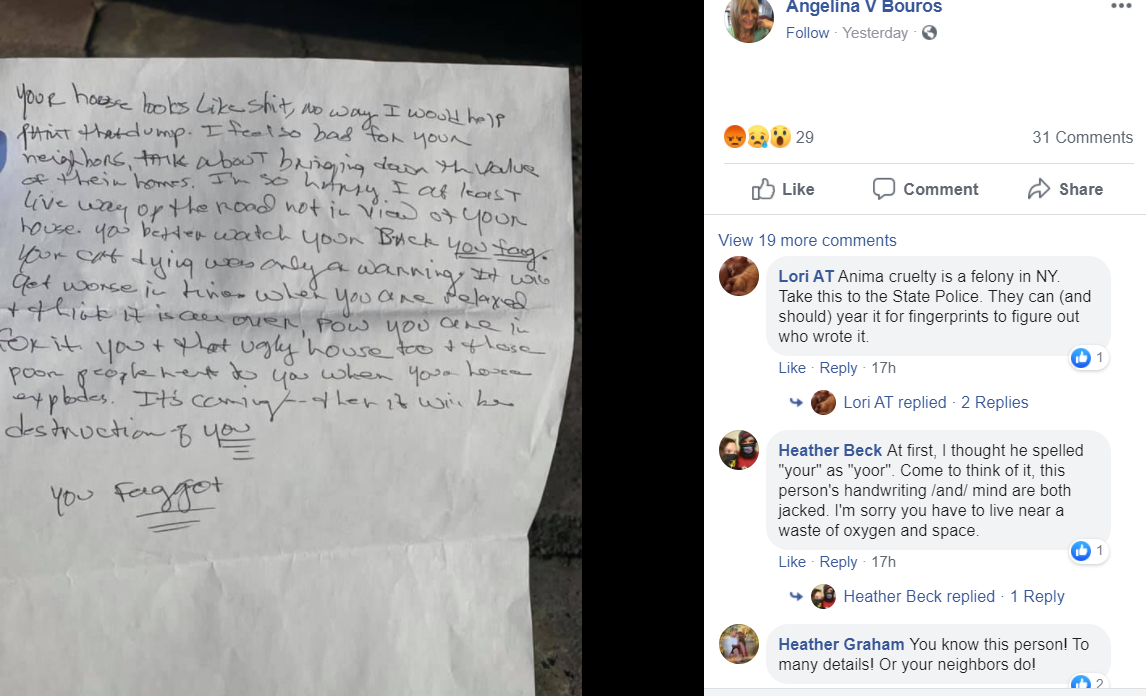 Your house looks Like shit, no way I would help
paint that dump. I feel so bad for your
neighbors, talk about bringing down th value
of their homes. I'm so happy I at least
live way up the road not in view of your
house. you better watch your Back you fag.
Your cat dying was only a warning, It will
Get worse in time when you are relaxed
+ think it is all over, pow you are in
for it. you + that ugly house too + those
poor people next to you when your house
explodes. It's coming -- then it will be
destruction of you
you Faggot
Angelina V Bouros
Follow · Yesterday ·
29
31 Comments
Like
Comment
Share
View 19 more comments
Lori AT Anima cruelty is a felony in NY.
Take this to the State Police. They can (and
should) year it for fingerprints to figure out
who wrote it.
1
Like · Reply · 17h
Lori AT replied · 2 Replies
Heather Beck At first, I thought he spelled
"your" as "yoor". Come to think of it, this
person's handwriting /and/ mind are both
jacked. I'm sorry you have to live near a
waste of oxygen and space.
1
Like · Reply · 17h
Heather Beck replied · 1 Reply
Heather Graham You know this person! To
many details! Or your neighbors do!
2